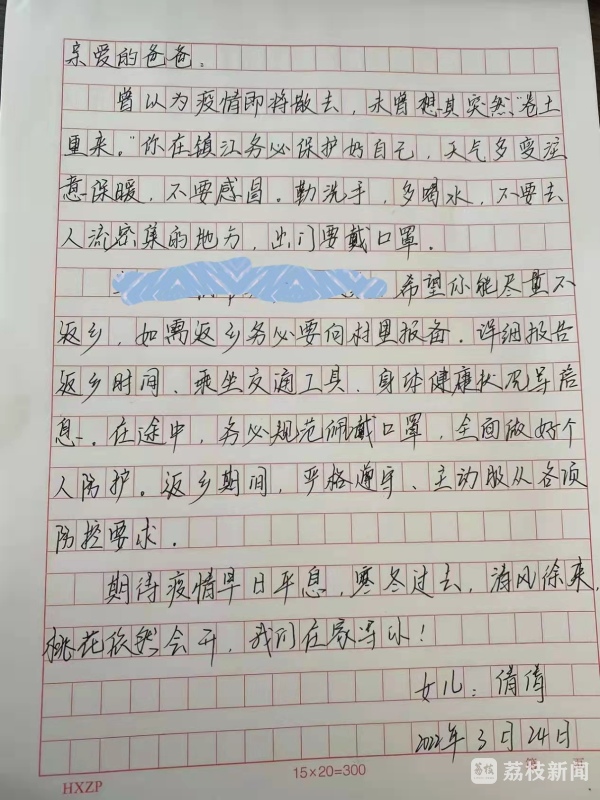 亲爱的爸爸:
曾以为疫情即将散去,未曾想其突然"卷土
重来。"你在镇江务必保护好自己,天气多变注
意保暖,不要感冒。勤洗手,多喝水,不要去
人流密集的地方,出门要戴口罩.
希望你能尽量不
返乡,如需返乡务必要向村里报备.详细报告
返乡时间、乘坐交通工具、身体健康状况等信
息.在途中,务必规范佩戴口罩,全面做好个
人防护。返乡期间,严格遵守、主动服从各项
防控要求.
期待疫情早日平息,寒冬过去,清风徐来,
桃花依然会开,我们在家等你!
女儿:倩倩
2022年3月24日
HXZP
15×20=300
第 页
荔枝
荔枝新闻